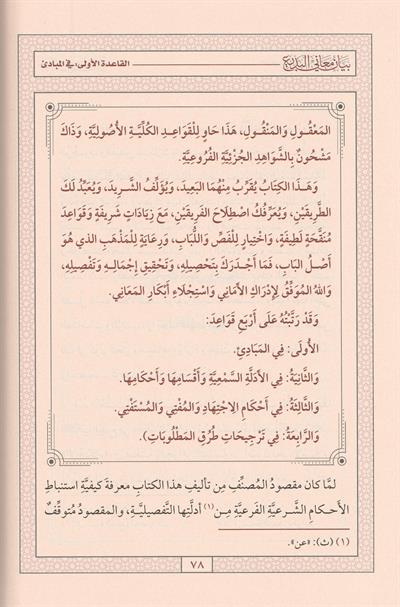 بيان معاني البديع
القاعدة الأولى: في المبادئ
المَعْقُولِ وَالمَنْقُولِ، هَذَا حَاوٍ لِلْقَوَاعِدِ الكُلِّيَّةِ الأُصُولِيَّةِ، وَذَاكَ
مَشْحُونٌ بِالشَّوَاهِدِ الجُزْئِيَّةِ الفُرُوعِيَّةِ.
وَهَذَا الكِتَابُ يُقَرِّبُ مِنْهُمَا البَعِيدَ، وَيُؤَلِّفُ الشَّرِيدَ، وَيُعَبِّدُ لَكَ
الطَّرِيقَيْنِ، وَيُعَرِّفُكَ اصْطِلَاحَ الفَرِيقَيْنِ، مَعَ زِيَادَاتٍ شَرِيفَةٍ وَقَوَاعِدَ
مُنَقَّحَةٍ لَطِيفَةٍ، وَاخْتِيَارٍ لِلْفَصِّ وَاللُّبَابِ، وَرِعَايَةٍ لِلْمَذْهَبِ الذي هُوَ
أَصْلُ البَابِ، فَمَا أَجْدَرَكَ بِتَحْصِيلِهِ، وَتَحْقِيقِ إِجْمَالِهِ وَتَفْصِيلِهِ،
وَاللهُ المُوَفِّقُ لِإِدْرَاكِ الأَمَانِي وَاسْتِجْلَاءِ أَبْكَارِ المَعَانِي.
وَقَدْ رَتَّبْتُهُ عَلَى أَرْبَعِ قَوَاعِدَ:
الأُولَى: فِي المَبَادِئِ.
وَالثَّانِيَةُ: فِي الأَدِلَّةِ السَّمْعِيَّةِ وَأَقْسَامِهَا وَأَحْكَامِهَا.
وَالثَّالِثَةُ: فِي أَحْكَامِ الِاجْتِهَادِ وَالمُفْتِي وَالمُسْتَفْتِي.
وَالرَّابِعَةُ: فِي تَرْجِيحَاتِ طُرُقِ المَطْلُوبَاتِ).
لمَّا كان مقصودُ المُصنِّفِ مِن تأليفِ هذا الكتابِ معرفةَ كيفيَّةِ استنباطِ
الأحكامِ الشَّرعيَّةِ الفَرعيَّةِ مِن(١) أدلَّتِها التَّفصيليَّةِ، والمقصودُ مُتوقِّفٌ
(١) (ث): «عن».
٧٨